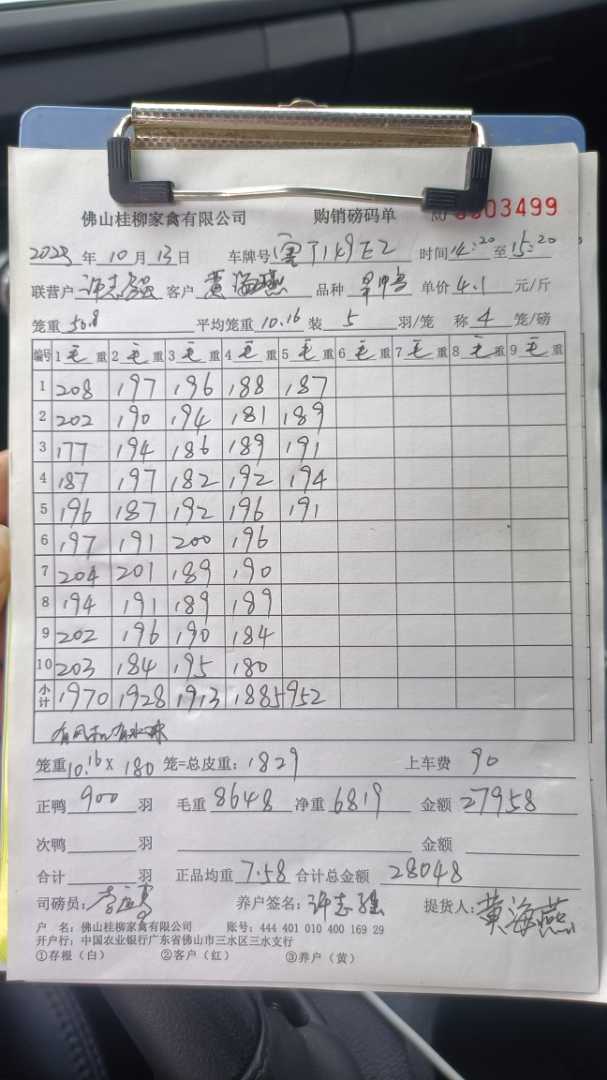 佛山桂柳家禽有限公司 购销磅码单 3499
2023年10月13日 车牌号 时间14:20至15:20
联营户许志强 客户黄海燕 品种 单价4.1元/斤
笼重50.8 平均笼重10.16装5羽/笼 称4笼/磅
编号 1毛重 2毛重 3毛重 4毛重 5毛重 6毛重 7毛重 8毛重 9毛重
1 208 197 196 188 187
2 202 190 194 181 189
3 177 194 186 189 191
4 187 197 182 192 194
5 196 187 192 196 191
6 197 191 200 196
7 204 201 189 190
8 194 191 189 189
9 202 196 190 184
10 203 184 195 180
小计 1970 1928 1913 1885 952
笼重10.16×180笼=总皮重:1829 上车费90
正鸭900羽 毛重8648 净重6819 金额27958
次鸭 羽 金额
合计 羽 正品均重7.58 合计总金额28048
司磅员: 养户签名:许志强 提货人:黄海燕
户 名:佛山桂柳家禽有限公司 账号:444 401 010 400 169 29
开户行:中国农业银行广东省佛山市三水区三水支行
①存根(白) ②客户(红) ③养户(黄)